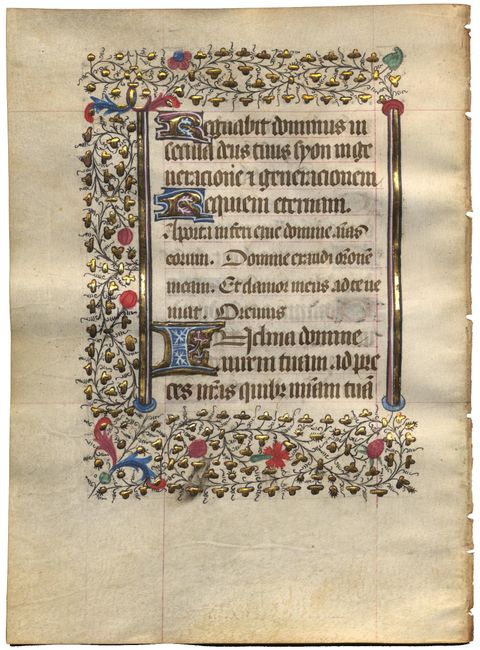 Regnabit dominus in
secula deus tuus syon in ge
neracione ⁊ generacionem
Requiem eternam.
A porta inferi erue domine aīas
eorum. Domine exaudi orōnē
meam. Et clamor meus ad te ve
niat Oremus
Inclina domine
aurem tuam ad pre
ces nr̄as quibꝫ mīam tuā